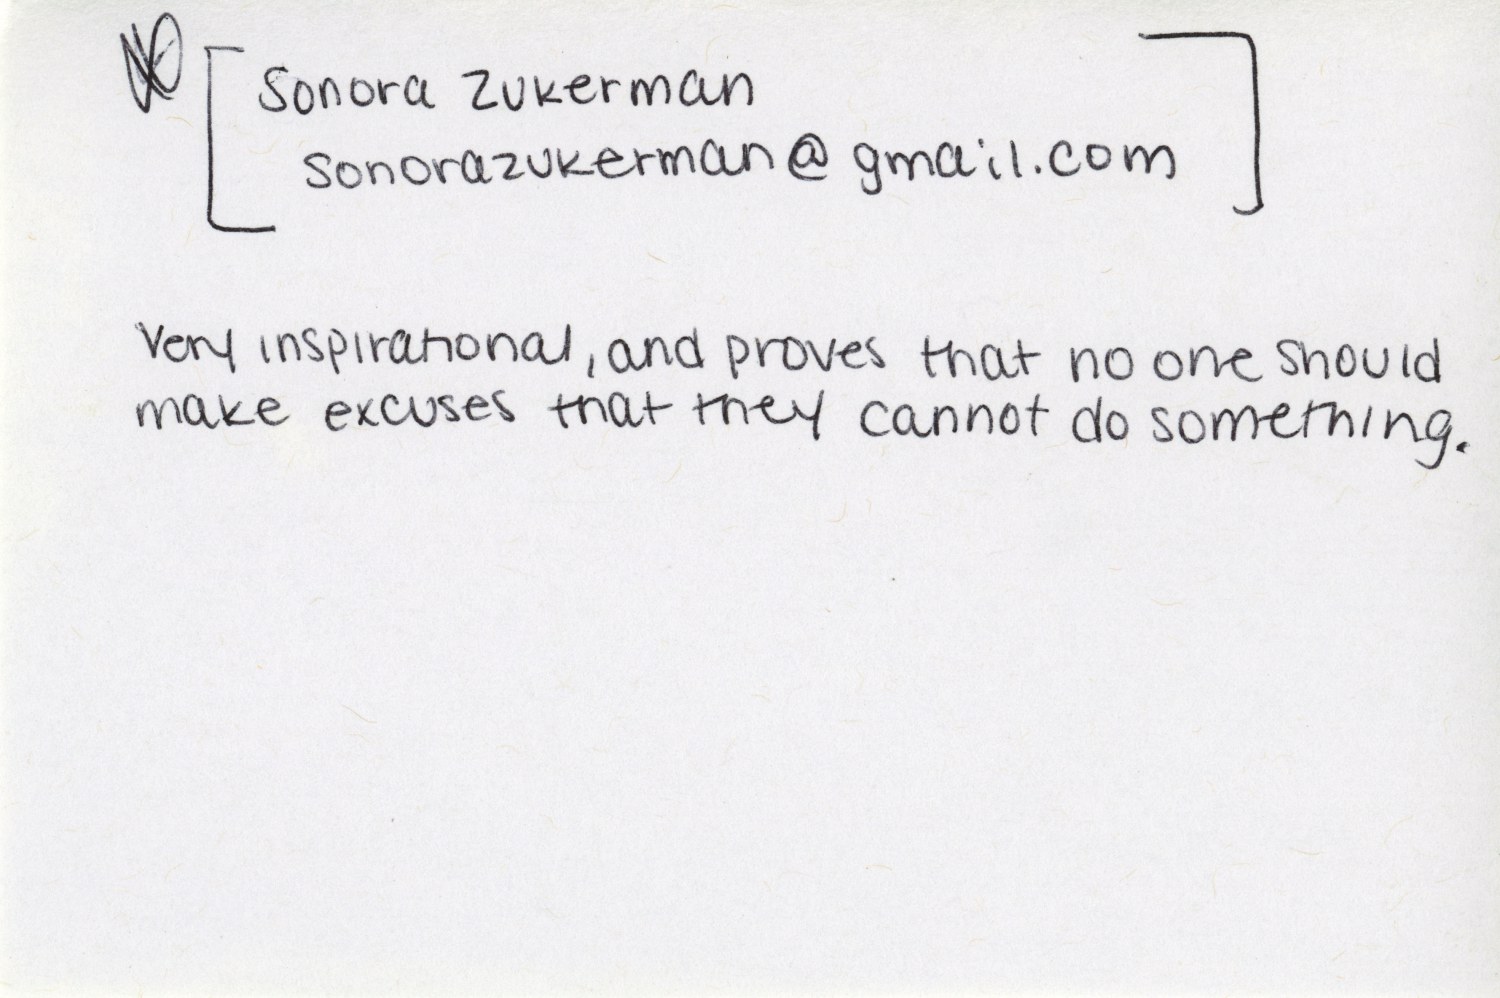 Sonora Zukerman
sonorazukerman@gmail.com
Very inspirational, and proves that no one should
make excuses that they cannot do something.